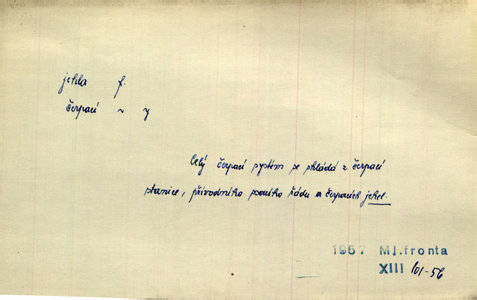 jehla f.
čerpací ~ y
Celý čerpací systém se skládá z čerpací
stanice, přívodního ního řádu a čerpacích jehel.
1957 Ml.fronta
XIII 101-56